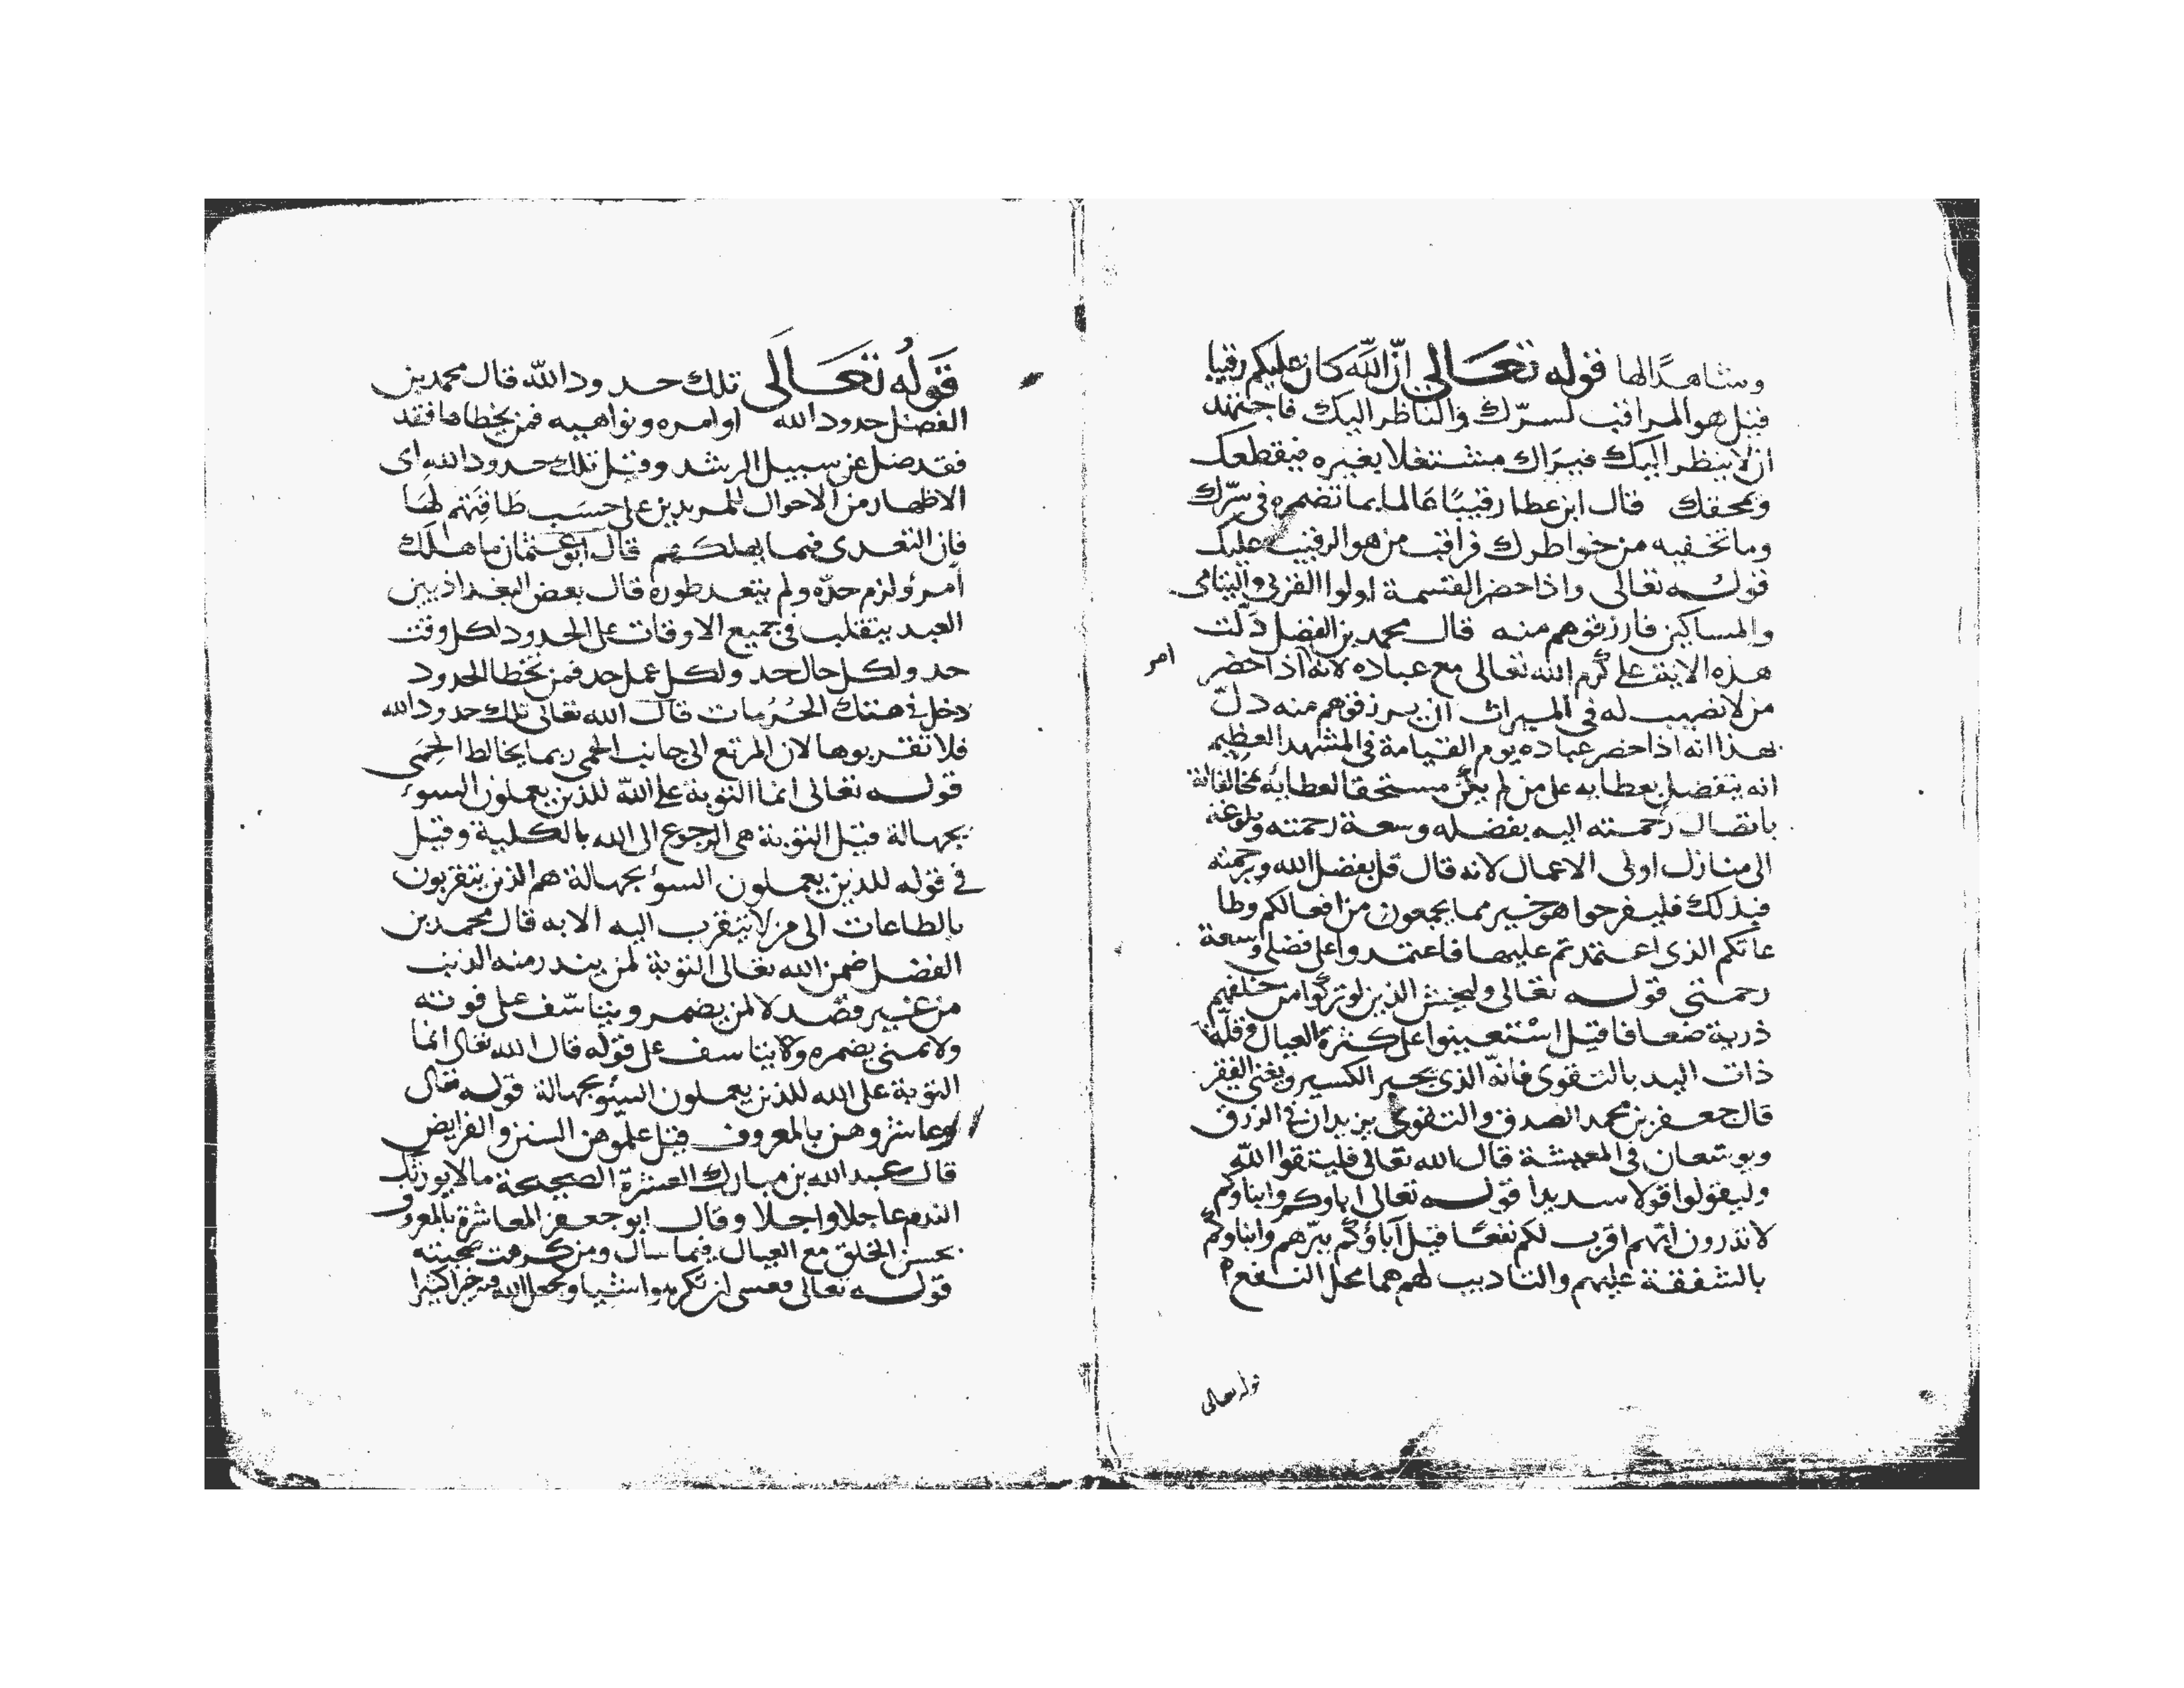 وشاهدًا لها قوله تعالى انّ اللّه كان عليكم رقيبا
قيل هو المراقب لسرّك والناظر اليك فاجتهد
ان لا ينظر اليك فيراك مشتغلا بغيره فيقطعك
ويمحقك قال ابن عطا رقيبًا عالما بما تضمره فى سرّك
وما تخفيه من خواطرك فراقب من هو الرقيب عليك
قوله تعالى واذا حضر القسمة اولوا القربى واليتامى
والمساكين فارزقوهم منه قال محمد بن الفضل دلّت
هذه الاية على كرم الله تعالى مع عباده لانه اذا حضر
امر
من لا نصيب له فى الميراث ان يرزقوهم منه دلّ
بهذا انه اذا حضر عباده يوم القيامة فى المشهد العظيم
انه يتفضل بعطايه على من لم يكن مستحقا لعطايه
باتصال رحمته اليه بفضله وسعة رحمته وبلوغه
الى منازل اولى الاعمال لانه قال قل بفضل الله وبرحمته
فبذلك فليفرحوا هو خير مما يجمعون من افعالكم وطا
عاتكم الذى اعتمدتم عليها فاعتمدوا على فضلى وسعة
رحمتى قوله تعالى وليخش الذين لو تركوا من خلفهم
ذرية ضعافا قيل استعينوا على كثرة العيال وقلّة
ذات اليد بالتقوى فانّه الذى يجبر الكسير ويغنى الفقر
قال جعفر بن محمد الصدق والتقوى يزيدان فى الرزق
ويوسعان فى المعيشة قال الله تعالى فليتقوا اللّه
وليقولوا قولا سديدا قوله تعالى اباوكم وابناوكم
لا تدرون ايّهم اقرب لكم نفعًا قيل آباؤكم ببرّهم وابناوكم
بالشفقة عليهم والتاديب لهم هما محل النفع ه
قوله تعالى
قَولُه تَعَالَى تلك حدود الله قال محمد بن
الفضل حدود الله اوامره ونواهيه فمن تخطاها فقد
فقد ضل عن سبيل الرشد وقيل تلك حدود الله اى
الاظهار من الاحوال للمريدين على حسب طاقتهم لها
فان التعدى فيها يهلكهم قال ابو عثمان ما هلك
أمرؤ لزم حدّه ولم يتعد طوره قال بعض البغداذيين
العبد يتقلب فى جميع الاوقات على الحدود لكل وقت
حد ولكل حال حد ولكل عمل حد فمن تخطا الحدود
دخل فى هتك الحُرُمات قال الله تعالى تلك حدود الله
فلا تقربوها لان المرتع الى جانب الحمى ربما يخالط الحمى
قوله تعالى انما التوبة على اللّه للذين يعملون السوء
بجهالة قيل التوبة هى الرجوع الى الله بالكلية وقيل
فى قوله للذين يعملون السوء بجهالة هم الذين يتقربون
بالطاعات الى من لا يتقرب اليه الا به قال محمد بن
الفضل ضمن الله تعالى التوبة لمن يندر منه الذنب
من غير قصد لا لمن يضمر ويتاسّف على فوته
ولا تمنى يضمره ولا يتاسف على قوله قال الله تعالى انما
التوبة على الله للذين يعملون السوء بجهالة قوله تعالى
وعاشروهن بالمعروف قيل علموهن السنن والفرايض
قال عبد الله بن مبارك العشرة الصحيحة مالا يورثك
الندم عاجلا واجلا وقال ابو جعفر المعاشرة بالمعروف
بحسن الخلق مع العيال فيما سال ومن كرهت صحبته
قوله تعالى فعسى ان تكرهوا شيا ويجعل الله فيه خيرا كثيرا